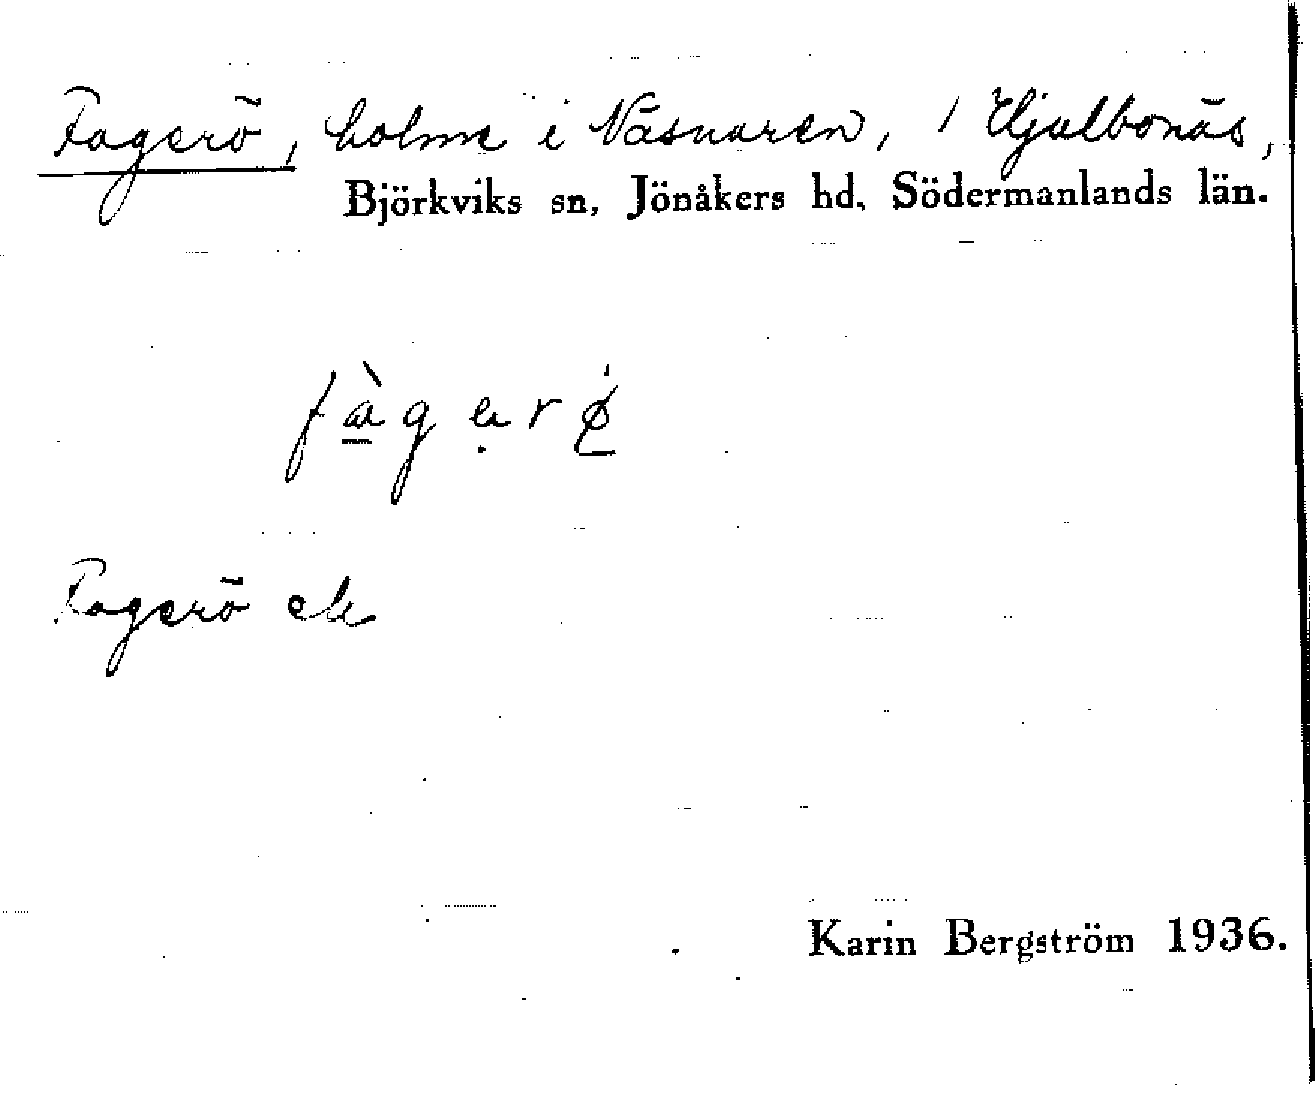 Fagerö, holme i Näsnaren, / Hjulbonäs,
Björkviks sn, Jönåkers hd, Södermanlands län.
Fagerö ek
Karin Bergström 1936.